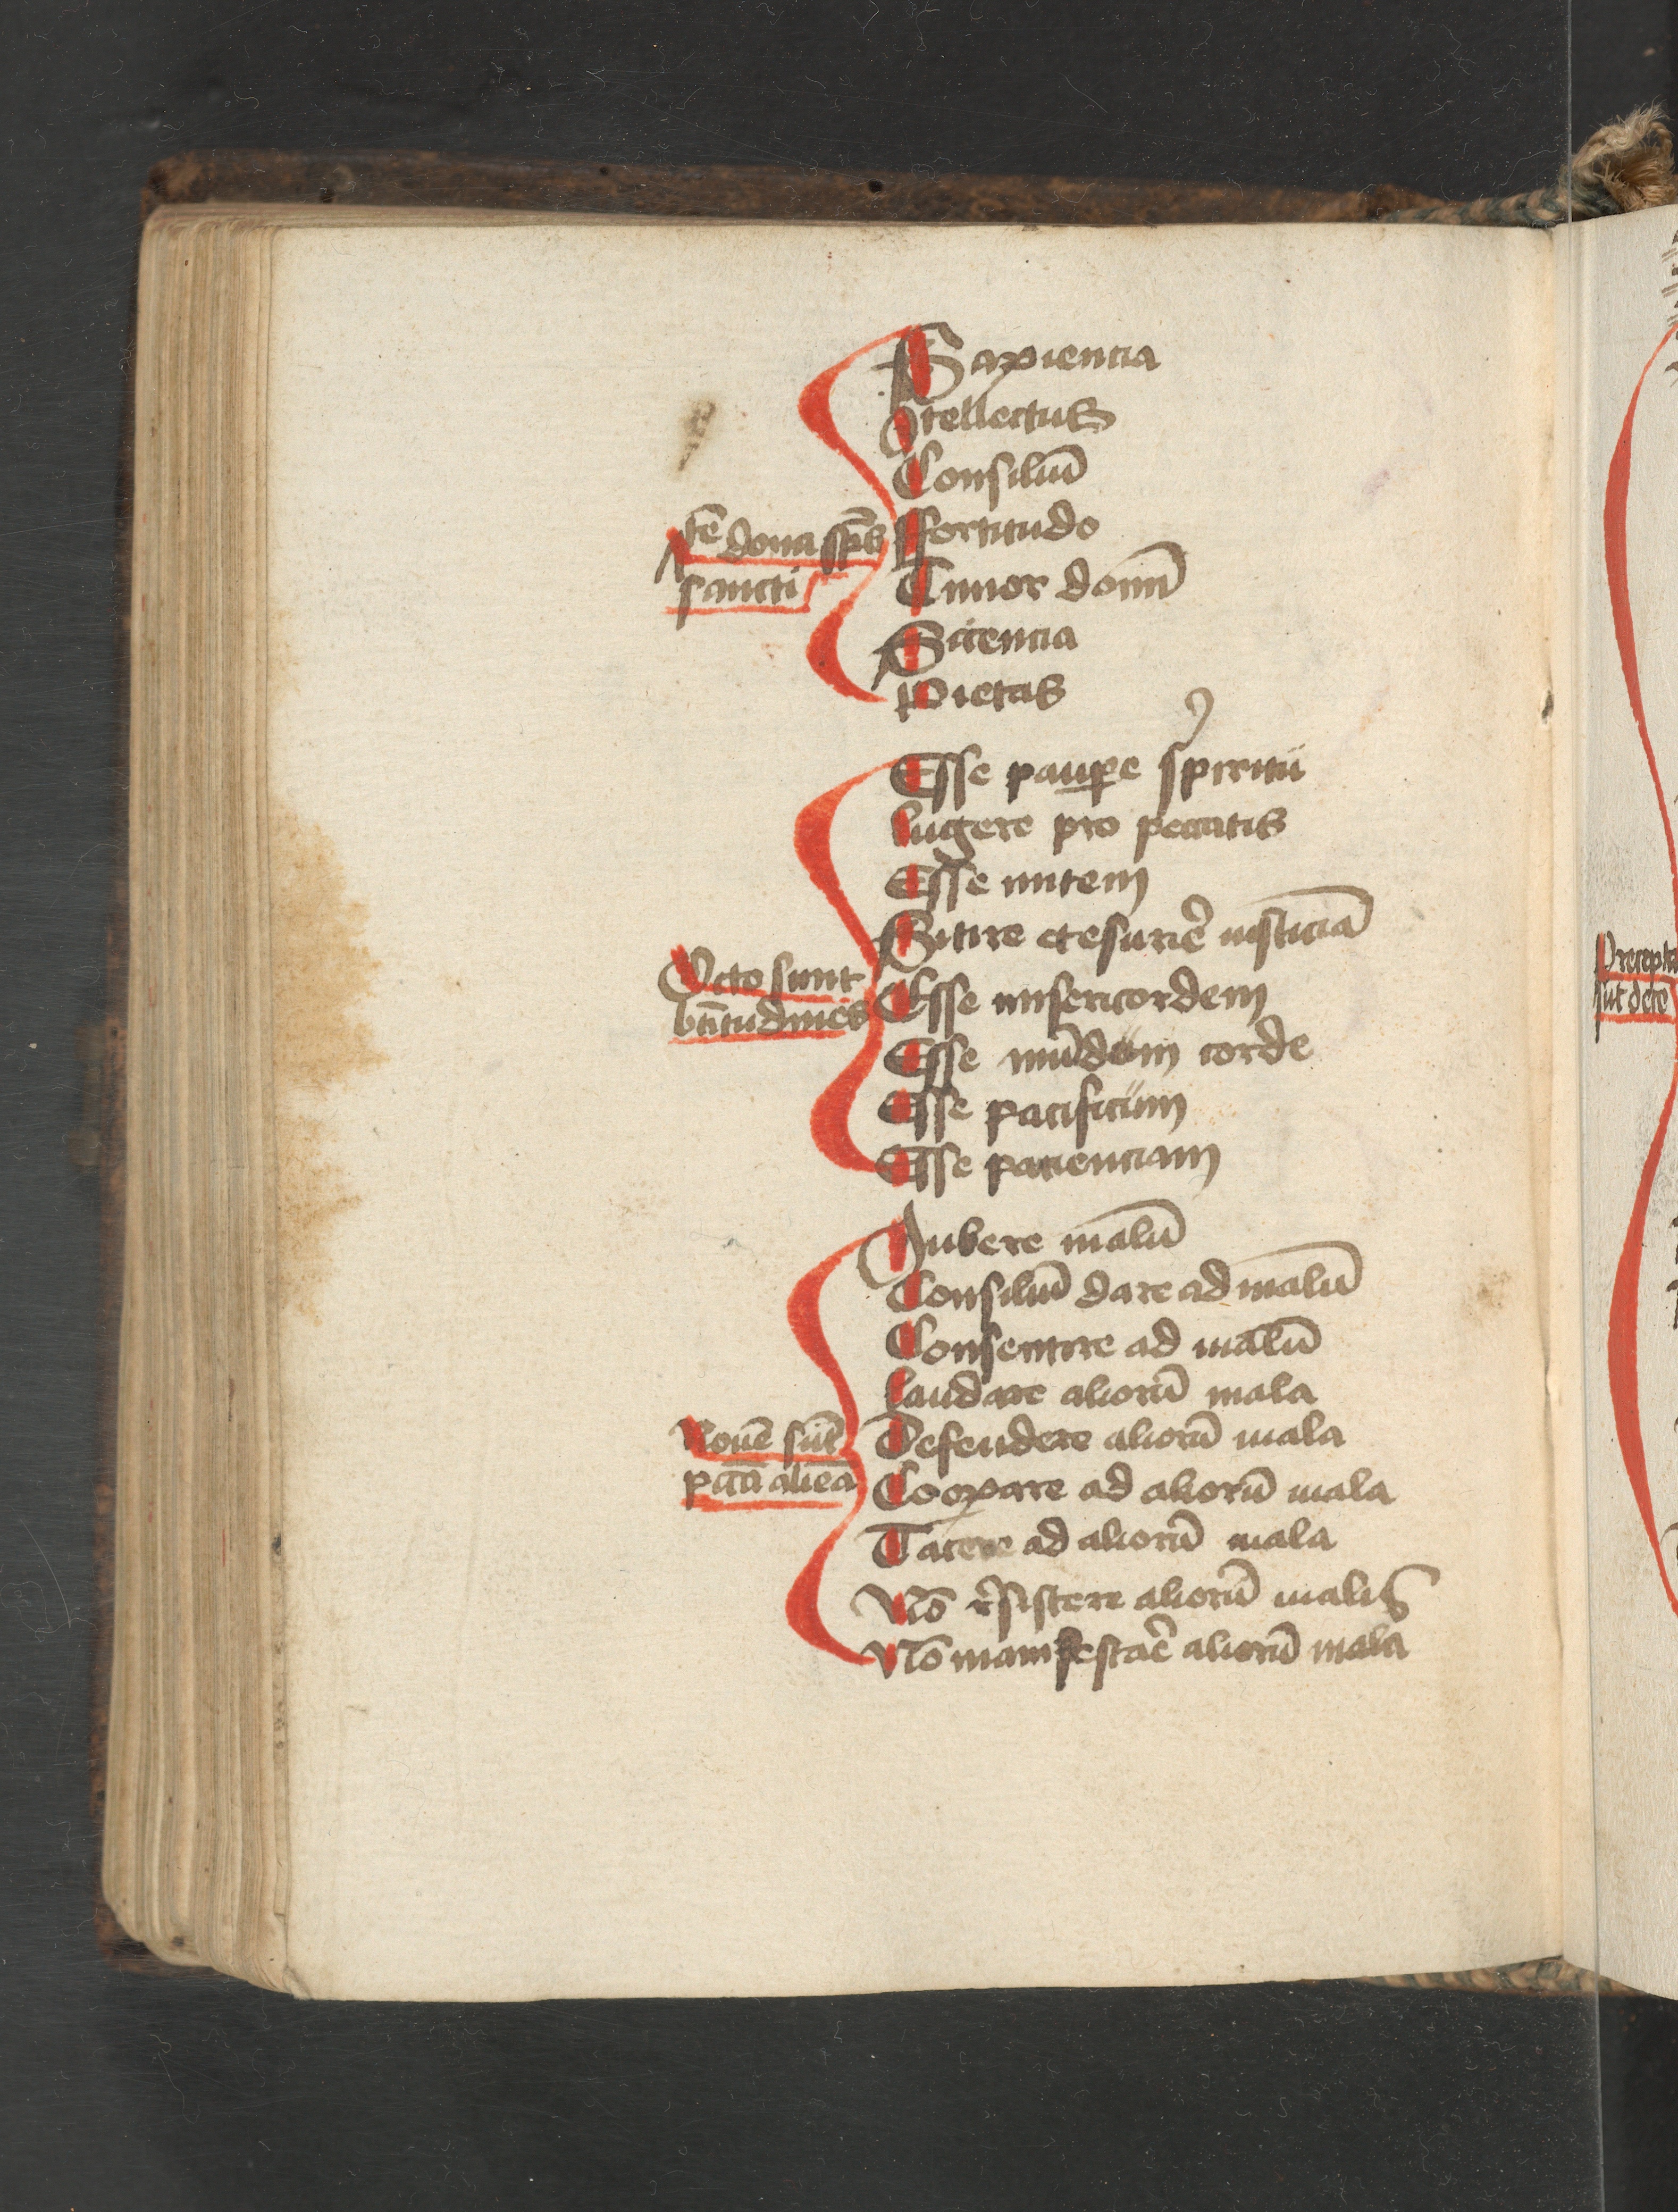 Sapiencia
Itellectus
Consiliū
ffortitudo
dona sp̄s
sancti
Timor dominī
Sciencia
Pietas
Esse paupe spiritū
lugere pro peccatis
Esse mitem
Sitire et esurire iusticiā
Octo sunt
btītudines
Esse misericordem
Esse mūdum corde
Esse pacificum
Esse pacienciam
Iubere malū
Consiliū dare ad malū
Consentire ad malū
laudare aliorū mala
Nouē sūt
pctā alieā
Defendere aliorū mala
Coopare ad aliorū mala
Tacere ad aliorū mala
Nō resistere aliorū malis
Nō manifestare aliorū mala
Precepta
sūt dece